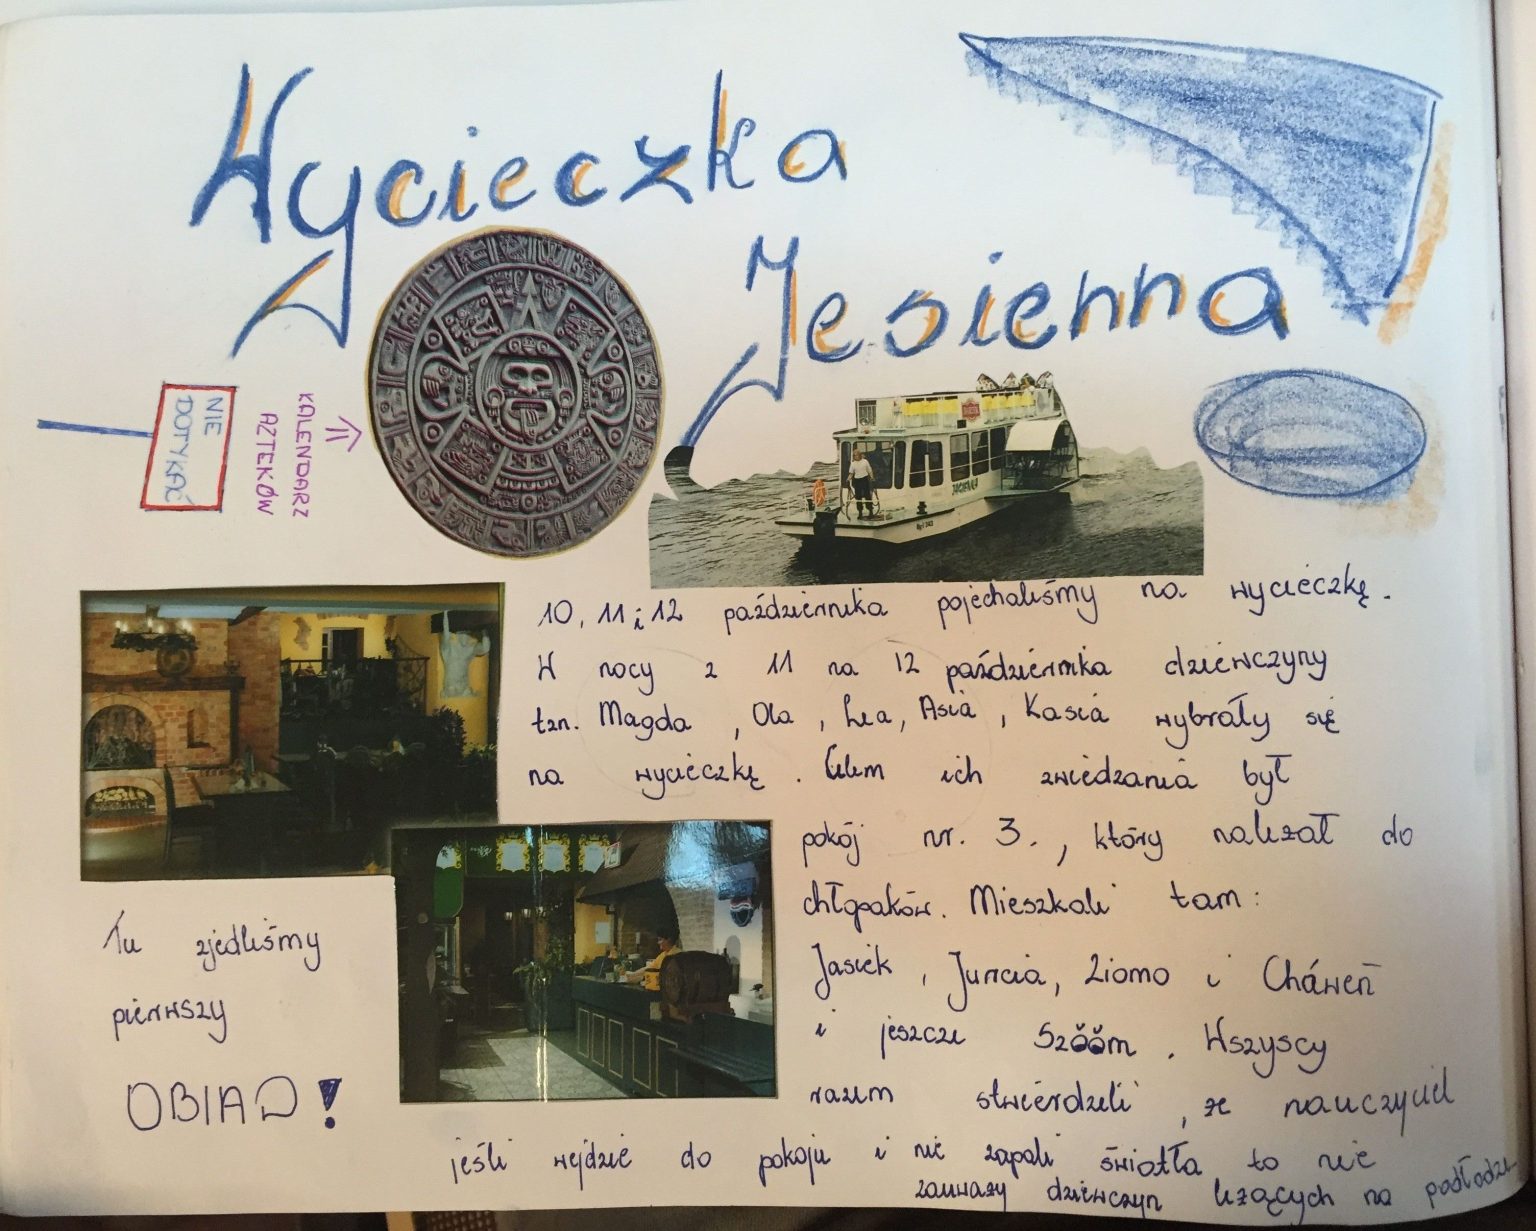 Wycieczka
Jesienna
NIE
DOTYKAĆ
KALENDARZ
AZTEKÓW
10, 11 i 12 października pojechaliśmy na wycieczkę.
W nocy z 11 na 12 października dziewczyny
tzn. Magda, Ola, Lea, Asia, Kasia wybrały się
na wycieczkę. Celem ich zwiedzania był
pokój nr. 3., który należał do
chłopaków. Mieszkali tam:
Jasiek, Juncia, Ziomo i Cháweñ
i jeszcze Szőőm. Wszyscy
razem stwierdzili, że nauczyciel
jeśli wejdzie do pokoju i nie zapali światła to nie
zauważy dziewczyn leżących na podłodze
Tu zjedliśmy
pierwszy
OBIAD!